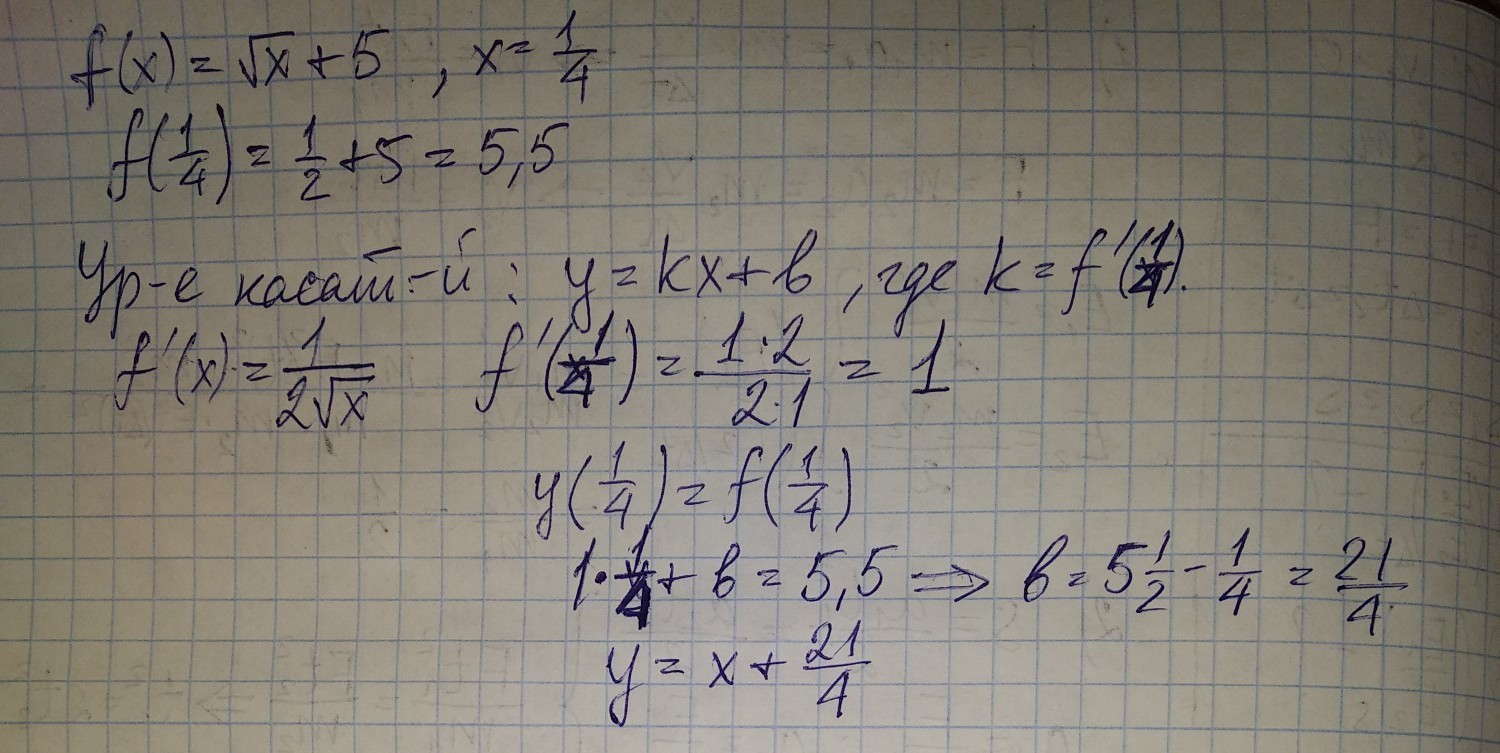 f(x) = √x + 5 , x = 1/4
f(1/4) = 1/2 + 5 = 5,5
Ур-е касат-й : y = kx + b , где k = f'(1/4).
f'(x) = 1/(2√x) f'(1/4) = (1·2)/(2·1) = 1
y(1/4) = f(1/4)
1·1/4 + b = 5,5 ⟹ b = 5 1/2 - 1/4 = 21/4
y = x + 21/4